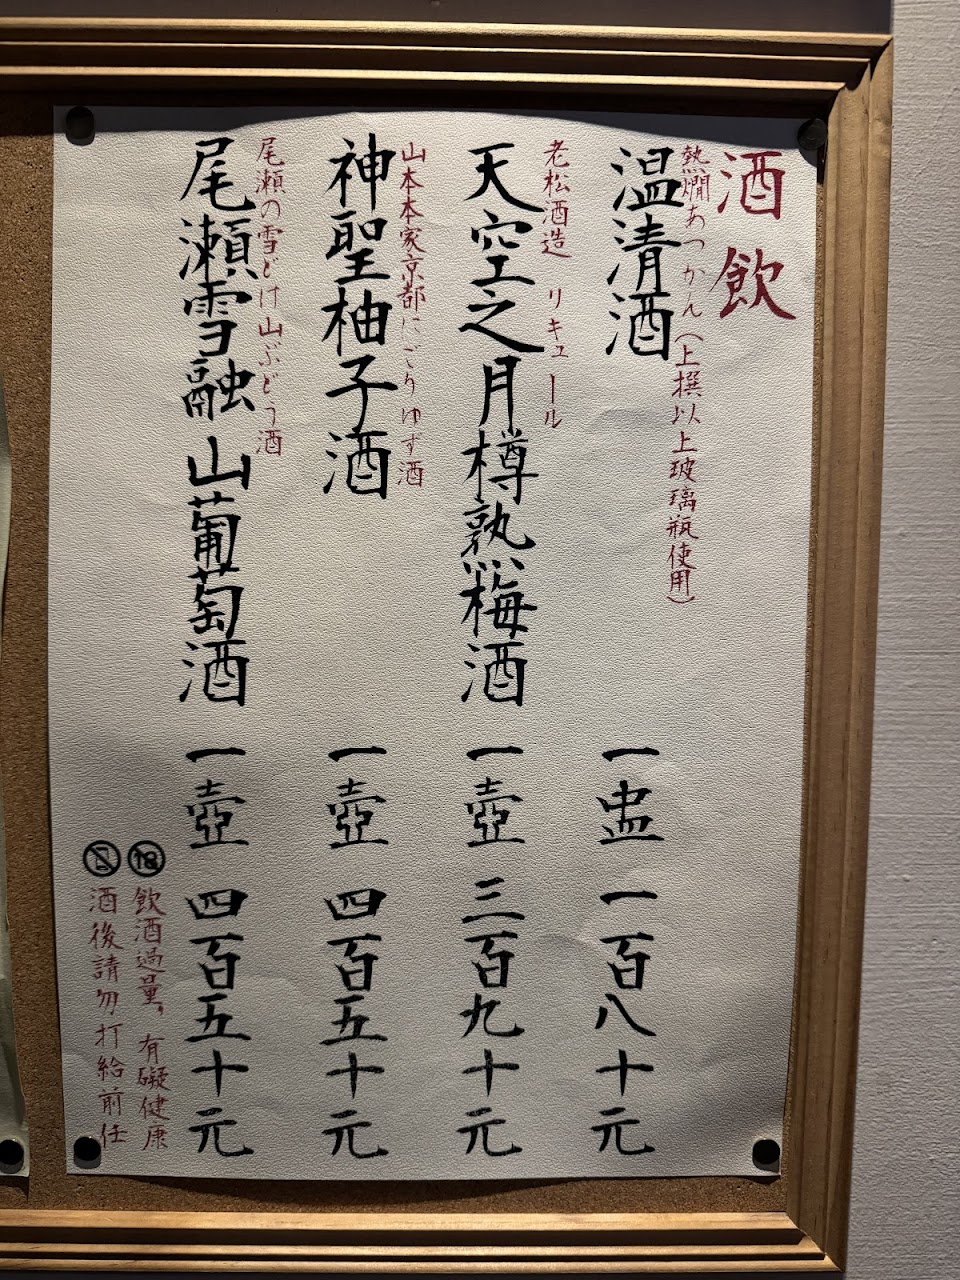 酒飲
熱燗あつかん（上撰以上玻璃瓶使用）
温清酒 一盅 一百八十元
老松酒造 リキュール
天空之月樽熟梅酒 一壺 三百九十元
山本本家京都にごりゆず酒
神聖柚子酒 一壺 四百五十元
尾瀬の雪どけ山ぶどう酒
尾瀬雪融山葡萄酒 一壺 四百五十元
18
飲酒過量，有礙健康
酒後請勿打給前任